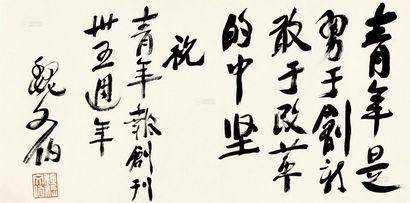 青年是
勇于創新
敢于改革
的中坚
祝
青年報創刊
卅五週年
魏文伯